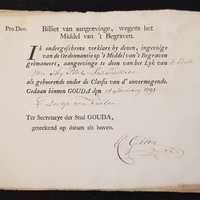 Pro Deo. Billiet van aangeevinge, wegens het
Middel van 't Begraven.
Ik ondergeschreve verklare by dezen, ingevolge
van de Ordonnantie op 't Middel van 't Begraven
geëmaneert, aangeevinge te doen van het Lyk van
als gehoorende onder de Classis van d' onvermogende.
Gedaan binnen GOUDA den 18 January 1791
Ter Secretarye der Stad GOUDA,
geteekend op datum als boven.